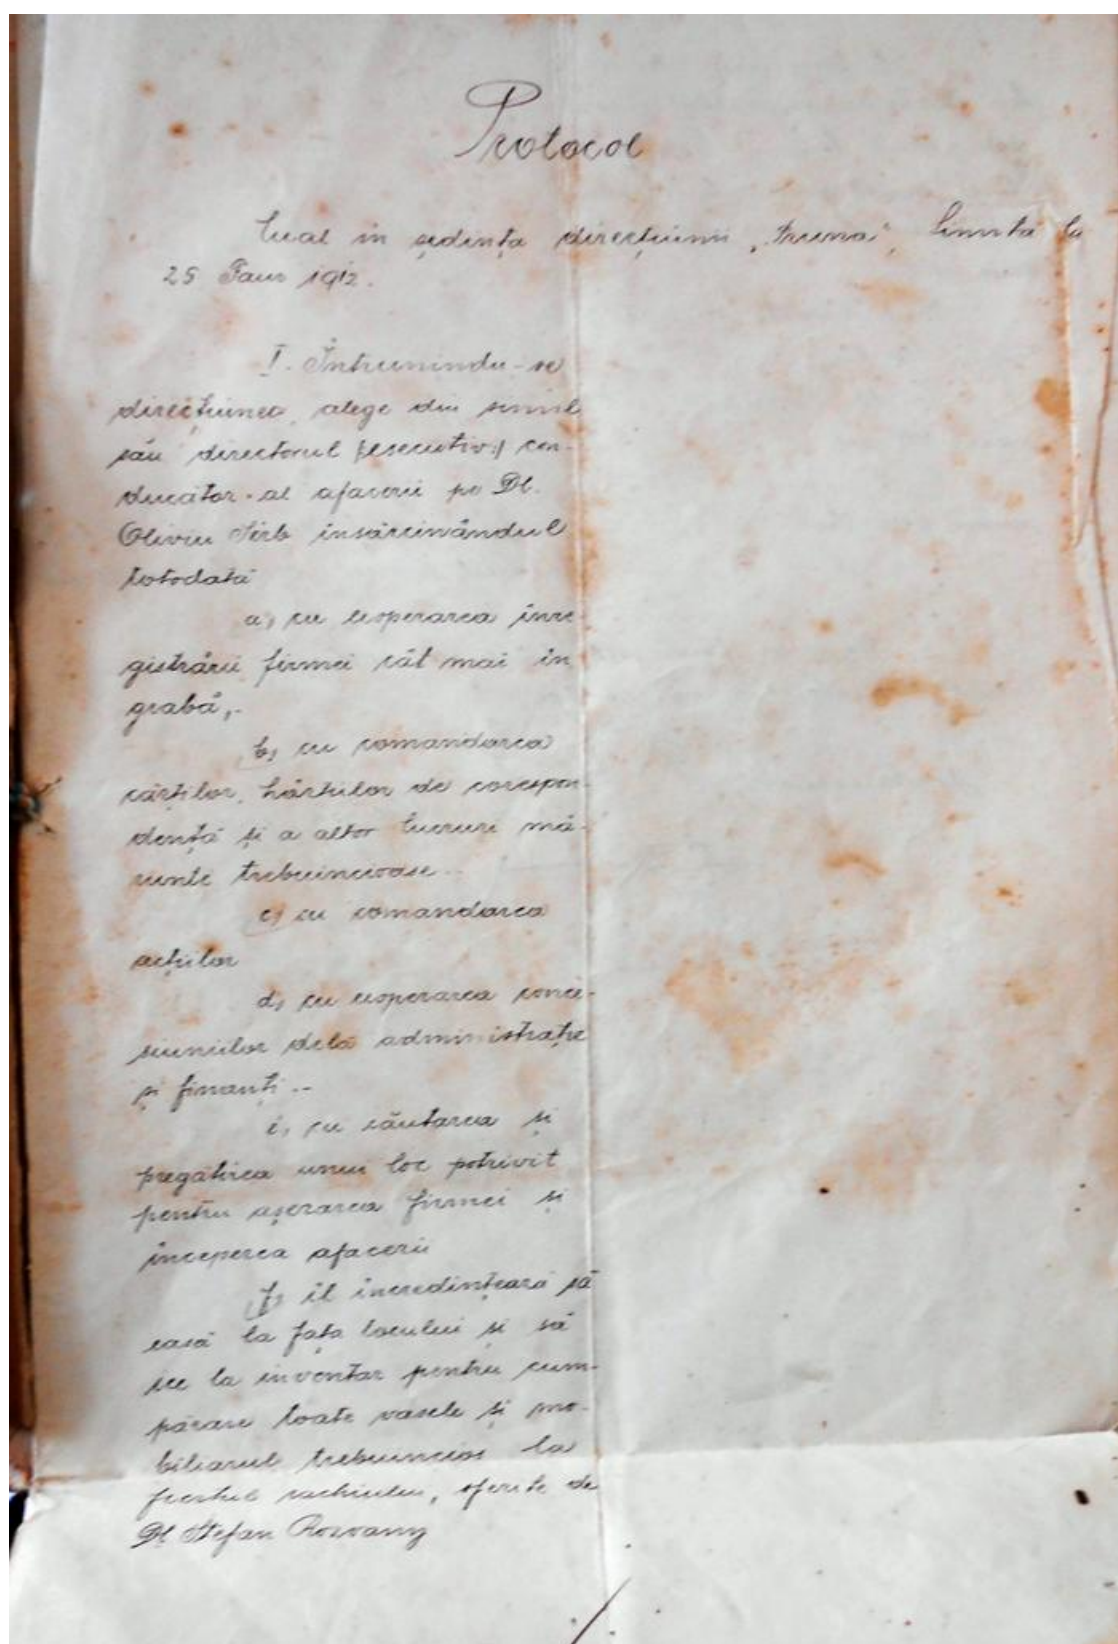 Protocol
luat in ședința direcțiunii „Pruna", ținută la
25 Faur 1912.
I. Întrunindu-se
direcțiunea, alege din sinul
său directorul /:esecutiv:/ con-
ducător al afacerii pe Dl.
Oliviu Sirb însărcinândul
totodată
a, cu esoperarea înre-
gistrării firmei cât mai in
grabă,.
b, cu comandarea
cărților, hârtiilor de corespon-
dență și a altor lucruri mă-
runte trebuincioase..
c, cu comandarea
acțiilor
d, cu esoperarea conce-
siuniilor dela administrație
și finanți..
e, cu căutarea și
pregătirea unui loc potrivit
pentru așezarea firmei și
începerea afacerii
f, îl încredințează să
easă la fața locului și să
iee la inventar pentru cum-
părare toate vasele și mo-
biliarul trebuincios la
fiertul rachiului, oferite de
Dl Stefan Rozvany